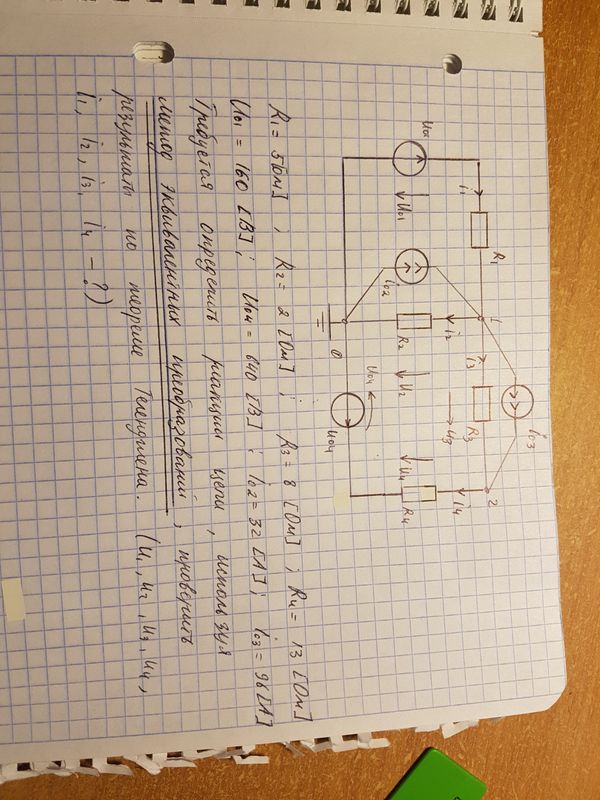 i₀₃
i₁ R₁ 1 i₃ R₃ 2
U₃
U₀₁ U₀₁ i₀₂ i₂ R₂ U₂ U₄ R₄ i₄
U₀₄
0 U₀₄
R₁ = 5[Ом] ; R₂ = 2 [Ом] ; R₃ = 8 [Ом] ; R₄ = 13 [Ом]
U₀₁ = 160 [В] ; U₀₄ = 640 [В] ; i₀₂ = 32 [А] ; i₀₃ = 96 [А]
Требуется определить реакции цепи, используя
метод эквивалентных преобразований, проверить
результаты по теореме Телледжена. (U₁, U₂, U₃, U₄,
i₁, i₂, i₃, i₄ - ?)